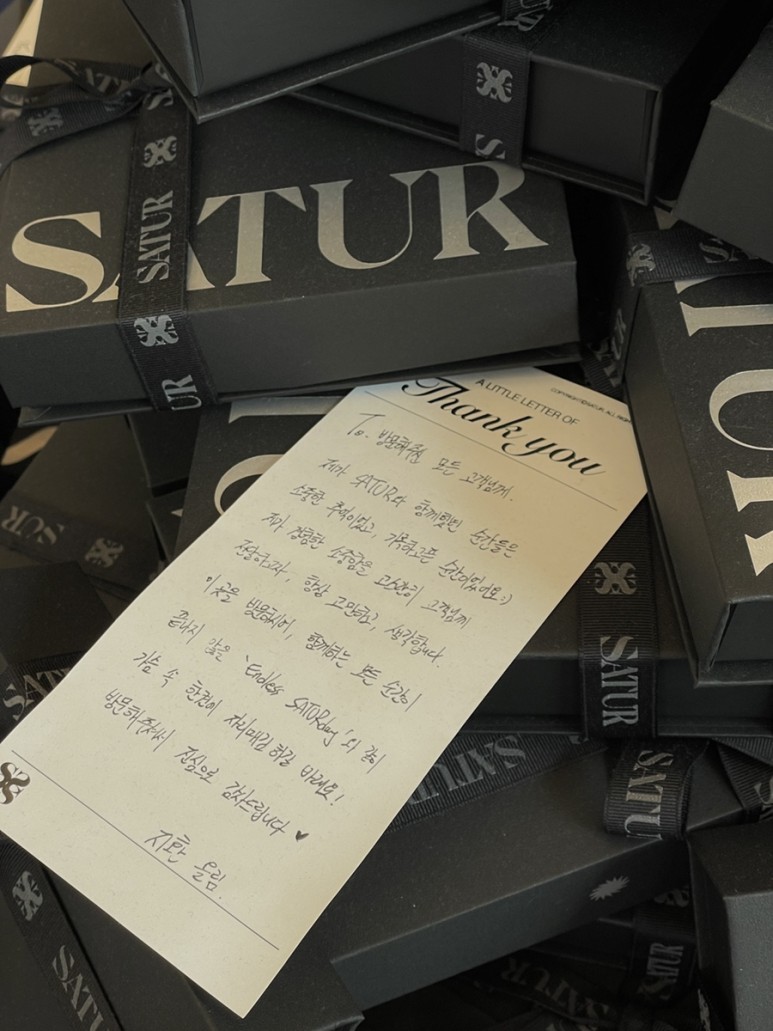 SATUR
SATUR
SATUR
SATUR
A LITTLE LETTER OF
Thank you
To. 방문해주신 모든 고객님께.
제가 SATUR와 함께했던 순간들은
소중한 추억이었고, 기록하고픈 순간이었어요:)
제가 경험한 소중함을 고스란히 고객님께
전달하고자, 항상 고민하고, 생각합니다.
이 곳을 방문하시어, 함께하는 모든 순간이
끝나지 않은 'Endless SATURday'와 같이
가슴 속 한켠에 자리매김하길 바래요!
방문해주셔서 진심으로 감사드립니다 ♥
지환 올림.
SATUR
SATUR
SATUR
SATUR